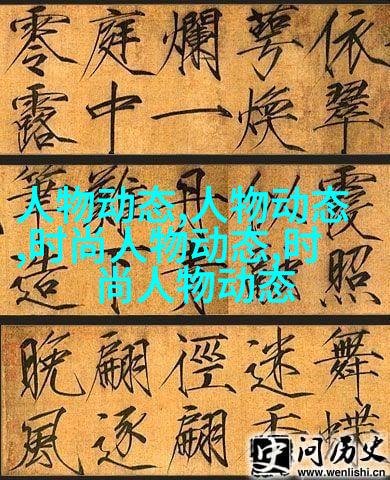 依翠
萼煥
爛一
庭中
零露
霞照
似
丹
難
筆造
舞蝶
迷香
徑翩
翩逐
晚風
人物动态,人物动态
,时尚人物动态,时
尚人物动态
问历史
www.wenlishi.cn